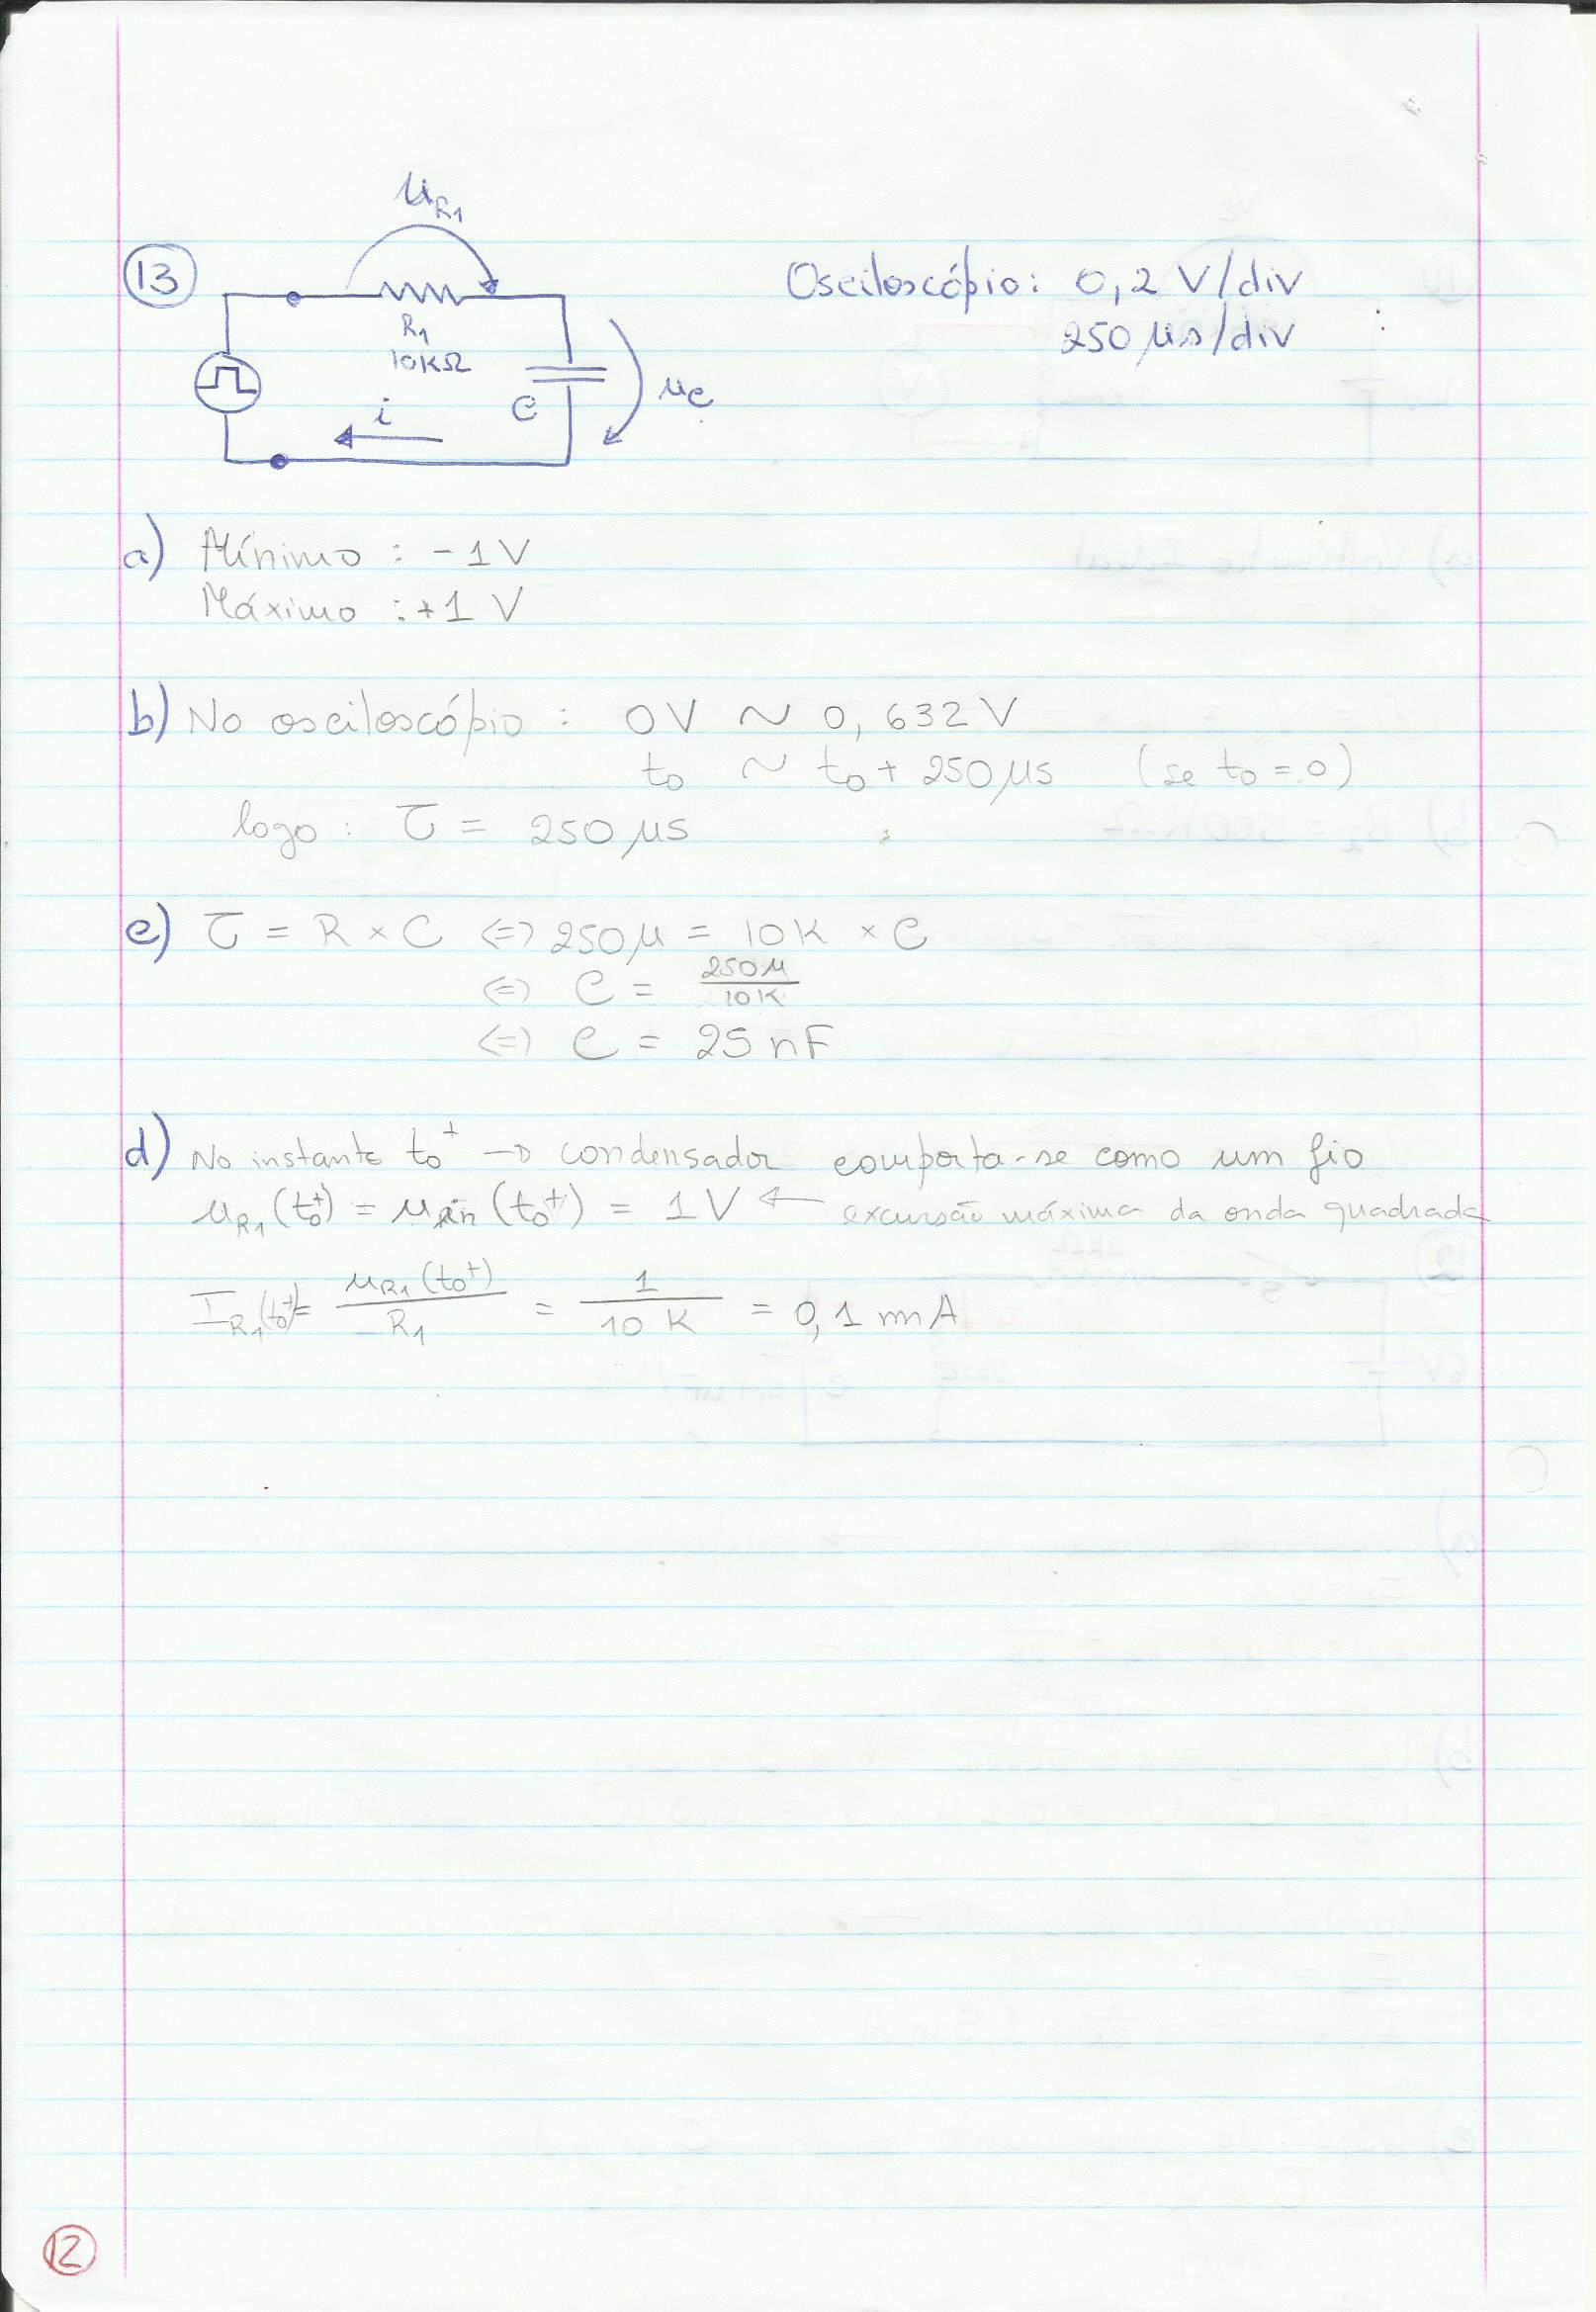 13
uR1
R1
10KΩ
C
uC
i
Osciloscópio: 0,2 V/div
250 µs/div
a) Mínimo : -1V
Máximo : +1 V
b) No osciloscópio : 0V ~ 0,632V
t0 ~ t0 + 250µs (se t0 = 0)
logo : τ = 250µs
c) τ = R × C <=> 250µ = 10K × C
<=> C = 250µ/10K
<=> C = 25nF
d) No instante t0+ → condensador comporta-se como um fio
uR1(t0+) = uin(t0+) = 1V ← excursão máxima da onda quadrada
IR1(t0+) = uR1(t0+)/R1 = 1/10K = 0,1 mA
12